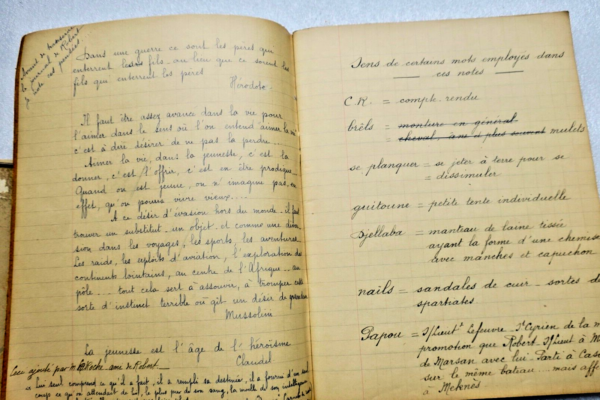 le journal de Robert
Dans une guerre ce sont les pères qui
enterrent les fils, au lieu que ce seront les
fils qui enterrent les pères
Hérodote
Il faut être assez avancé dans la vie pour
l'aimer dans le sens où l'on entend aimer la vie
c'est à dire désirer de ne pas la perdre.
Aimer la vie, dans la jeunesse, c'est la
donner, c'est l'offrir, c'est en être prodigue...
Quand on est jeune, on n'imagine pas, en
effet, qu'on puisse vivre vieux....
A ce désir d'évasion hors du monde, il faut
trouver un substitut, un objet, et comme une
sion dans les voyages, les sports, les aventures.
Les raids, les exploits d'aviation, l'exploration des
continents lointains, au centre de l'Afrique.... au
pôle.... tout cela sert à assouvir, à tromper cette
sorte d'instinct terrible où gît un désir de
Mussolini
La jeunesse est l'âge de l'héroïsme
Claudel
ajouté par de Robert
a lui seul comprend ce qu'il a fait, il a rempli sa destinée, il a fourni d'un seul
coup ce qu'on attendait de lui, le plus pur de son sang, la moelle de son intelligence
Sens de certains mots employés dans
ces notes
C.R. = compte-rendu
brêls = monture en général
= cheval, âne et plus souvent mulets
se planquer = se jeter à terre pour se
= dissimuler
guitoune = petite tente individuelle
Djellaba = manteau de laine tissée
ayant la forme d'une chemise
avec manches et capuchon
nails = sandales de cuir - sortes de
spartiates
Papou = Lefeuvre St Cyrien de la m
promotion que Robert. Affecté à M
de Marsan avec lui. Parte à Casa
sur le même bateau... mais aff
à Meknès